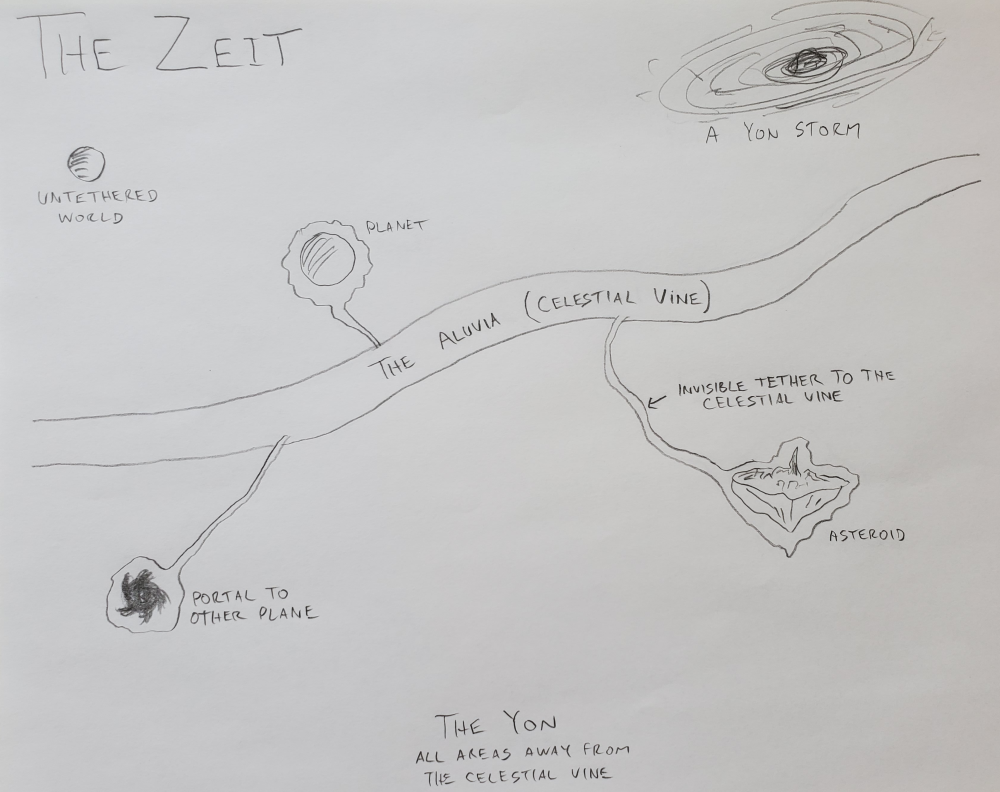 THE ZEIT
A YON STORM
UNTETHERED
WORLD
PLANET
THE ALUVIA (CELESTIAL VINE)
INVISIBLE TETHER TO THE
CELESTIAL VINE
ASTEROID
PORTAL TO
OTHER PLANE
THE YON
ALL AREAS AWAY FROM
THE CELESTIAL VINE